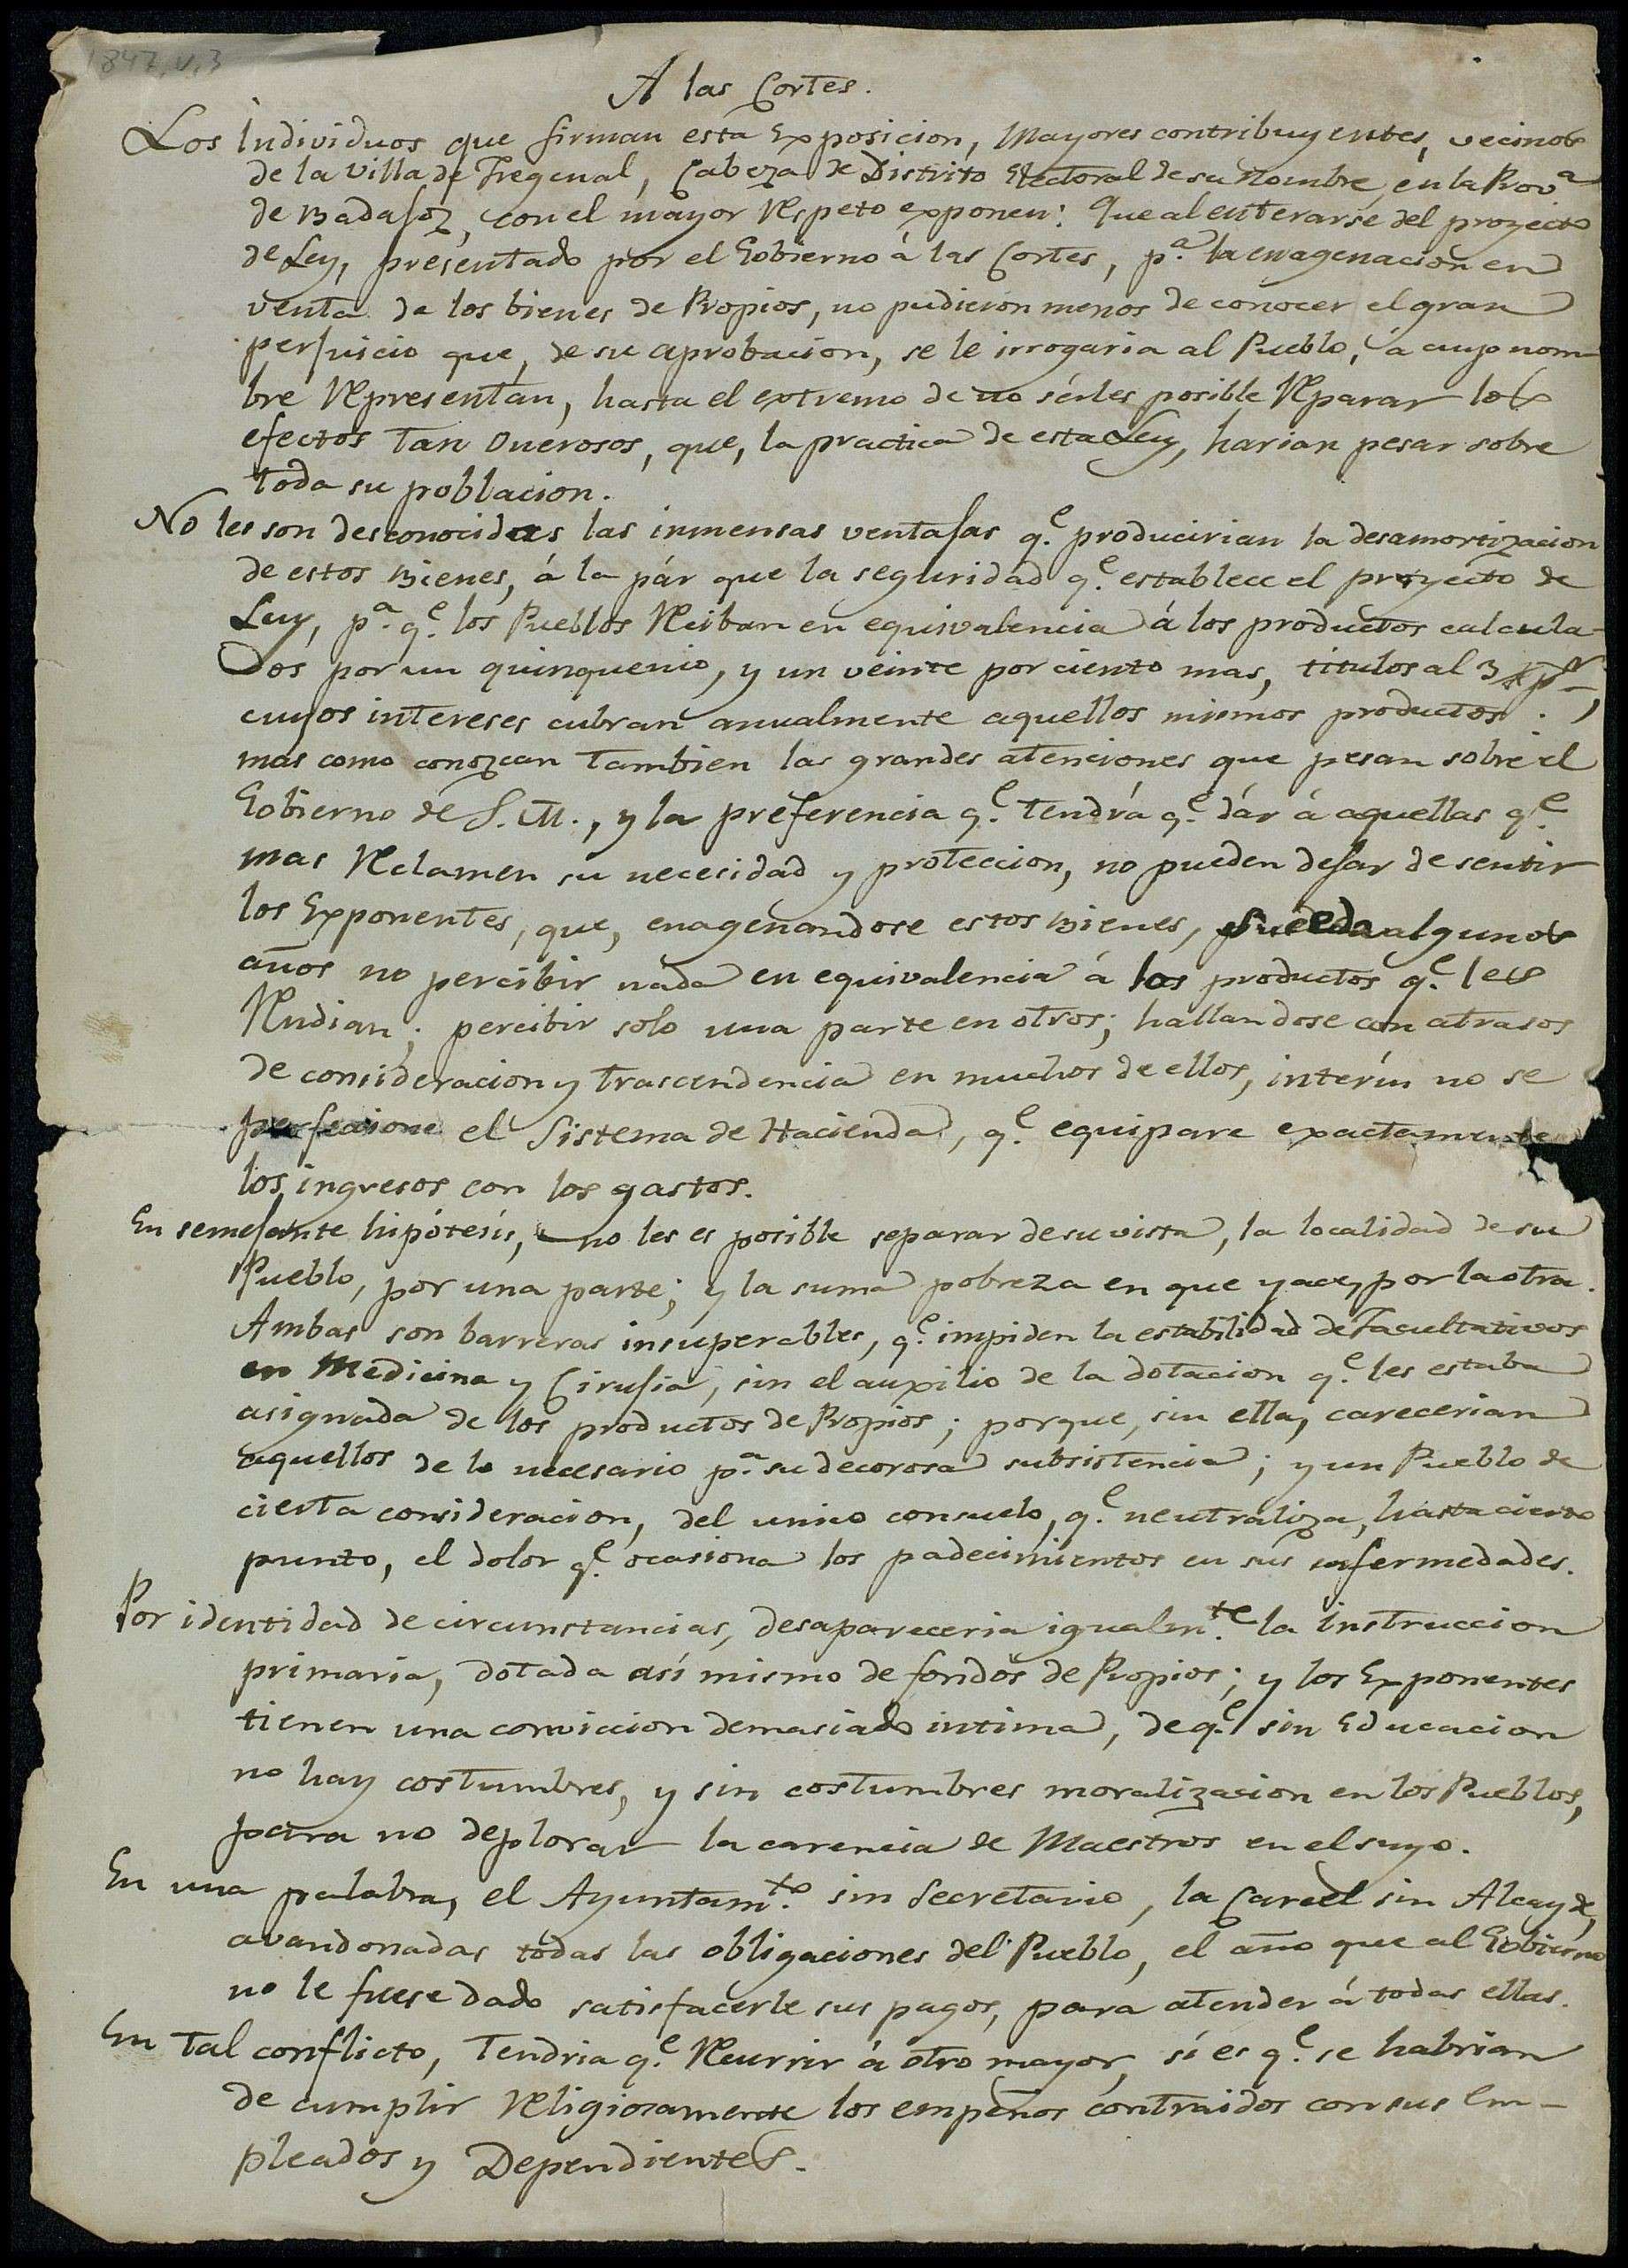 1847, v. 3
A las Cortes.
Los Individuos que firman esta Exposicion, Mayores contribuyentes, vecinos
de la villa de Fregenal, Cabeza de Distrito Electoral de su Nombre, en la Prov.ª
de Badajoz, con el mayor Respeto exponen: Que al enterarse del proyecto
de Ley, presentado por el Gobierno á las Cortes, p.ª la enagenacion en
venta de los bienes de Propios, no pudieron menos de conocer el gran
perjuicio que, de su aprobacion, se le irrogaria al Pueblo, á cuyo nom-
bre Representan, hasta el extremo de no sérles posible Reparar los
efectos tan Onerosos, que, la practica de esta Ley, harian pesar sobre
toda su poblacion.
No les son desconocidas las inmensas ventajas q.e producirian la desamortizacion
de estos Bienes, á la pár que la seguridad q.e establece el proyecto de
Ley, p.ª q.e los Pueblos Reciban en equivalencia á los productos calcula-
dos por un quinquenio, y un veinte por ciento mas, titulos al 3 p%,
cuyos intereses cubran anualmente aquellos mismos productos.;
mas como conozcan tambien las grandes atenciones que pesan sobre el
Gobierno de S. M., y la preferencia q.e tendrá q.e dár á aquellas q.e
mas Reclamen su necesidad y proteccion, no pueden dejar de sentir
los Exponentes, que, enagenandose estos Bienes, pueda algunos
años no percibir nada en equivalencia á los productos q.e les
Rendian; percibir solo una parte en otros; hallandose con atrasos
de consideracion y trascendencia en muchos de ellos, interín no se
perfecione el Sistema de Hacienda, q.e equipare exactamente
los ingresos con los gastos.
En semejante hipótesis, no les es posible separar de su vista, la localidad de su
Pueblo, por una parte; y la suma pobreza en que yace, por la otra.
Ambas son barreras insuperables, q.e impiden la estabilidad de Facultativos
en Medicina y Cirujia, sin el auxilio de la dotacion q.e les estaba
asignada de los productos de Propios; porque, sin ella, carecerian
aquellos de lo necesario p.ª su decorosa subsistencia; y un Pueblo de
cierta consideracion, del unico consuelo, q.e neutraliza, hasta cierto
punto, el dolor q.e ocasiona los padecimientos en sus enfermedades.
Por identidad de circunstancias, desapareceria igualm.te la instruccion
primaria, dotada así mismo de fondos de Propios; y los Exponentes
tienen una conviccion demasiado intima, de q.e sin Educacion
no hay costumbres, y sin costumbres moralizacion en los Pueblos,
para no deplorar la carencia de Maestros en el suyo.
En una palabra, el Ayuntam.to sin Secretario, la Carcel sin Alcayde,
avandonadas todas las obligaciones del Pueblo, el año que al Gobierno
no le fuese dado satisfacerle sus pagos, para atender á todas ellas.
En tal conflicto, tendria q.e Recurrir á otro mayor, sí es q.e se habrian
de cumplir Religiosamente los empeños contraidos con sus Em-
pleados y Dependientes.